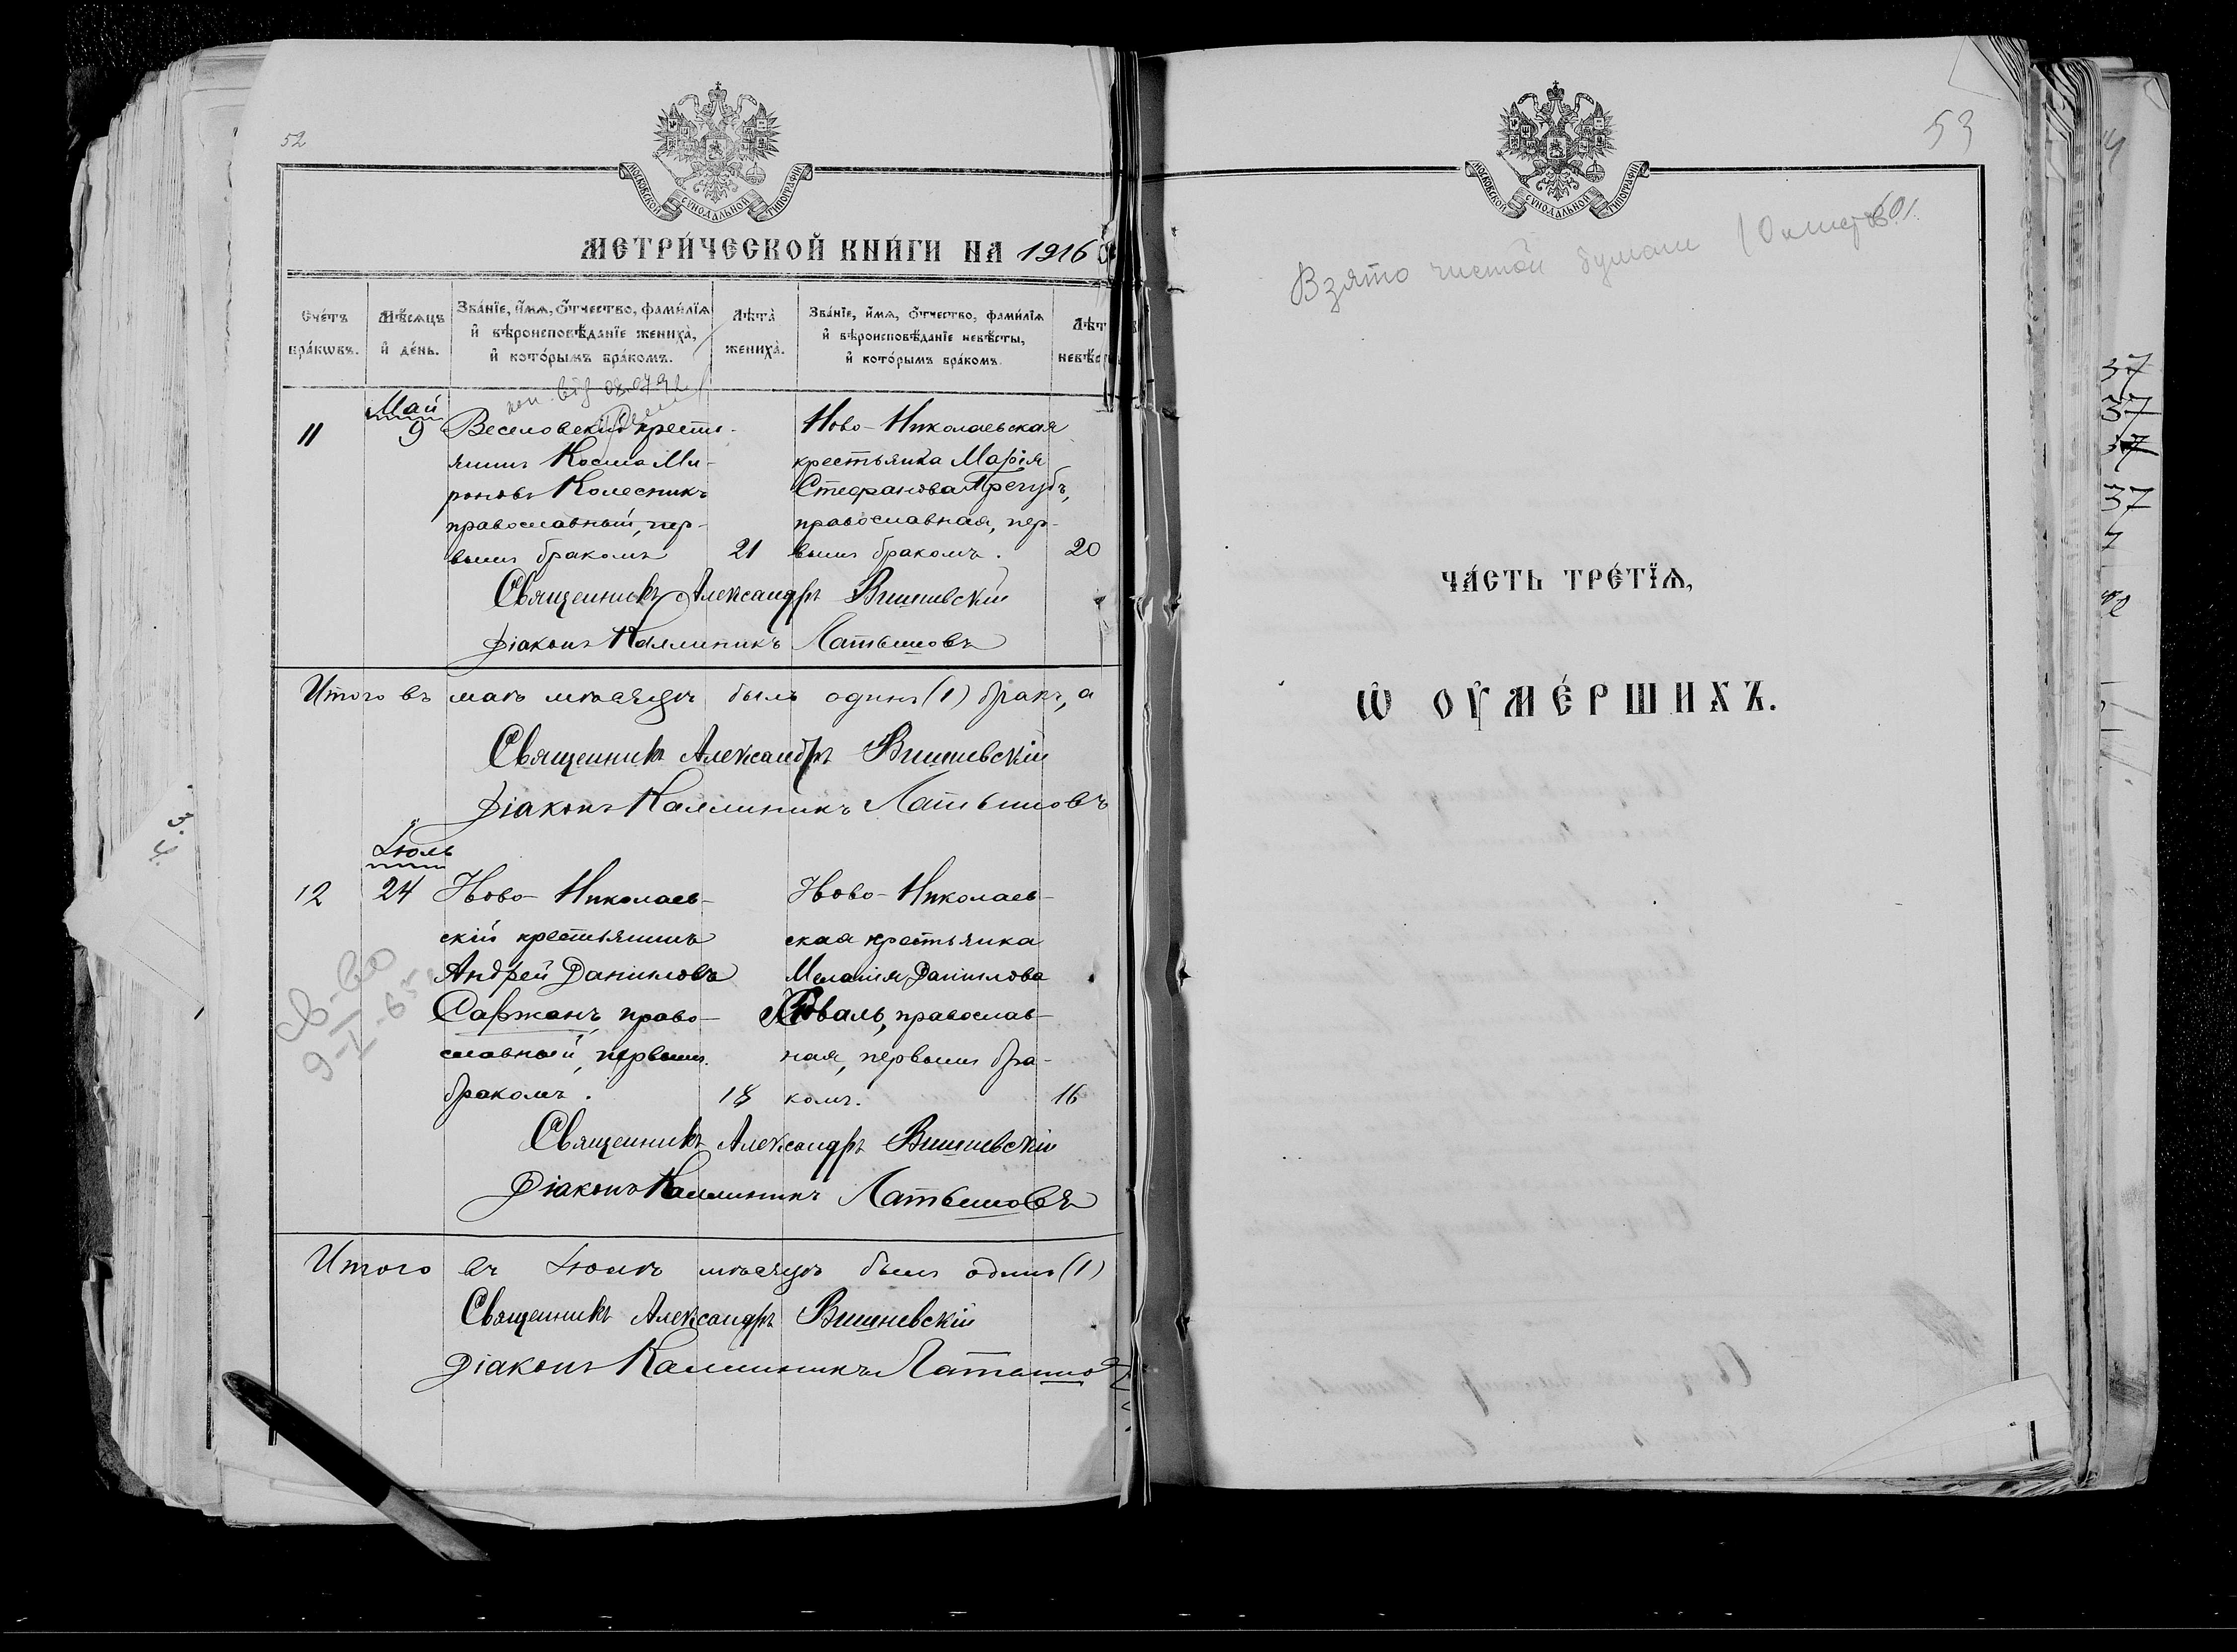 52
МОСКОВСКОЙ СУНОДАЛЬНОЙ ТИПОГРАФІИ
МЕТРИ́ЧЕСКОЙ КНИ́ГИ НА 1916
Сче́тъ бра́кωвъ.
Мѣ́сяцъ и҆ де́нь.
Зва́нїе, и҆́мѧ, ѻ҆́тчество, фами́лїѧ и҆ вѣроисповѣ́данїе жениха̀, и҆ кото́рымъ бра́комъ.
Лѣта̀ жениха̀.
Зва́нїе, и҆́мѧ, ѻ҆́тчество, фами́лїѧ и҆ вѣроисповѣ́данїе невѣ́сты, и҆ кото́рымъ бра́комъ.
Лѣт
невѣ́с
Май
11 9 Веселовский крестьянинъ Косма Миро­новъ Колесникъ
православный, пер-
вымъ бракомъ 21
Ново-Николаевская
крестьянка Марія
Стефанова Трегубъ,
православная, пер-
вымъ бракомъ. 20
Священникъ Александръ Вишневскій
Діаконъ Каллиникъ Латышовъ
Итого въ маѣ мѣсяцѣ былъ одинъ (1) бракъ, а
Священникъ Александръ Вишневскій
Діаконъ Каллиникъ Латышовъ
Іюль
12 24 Ново-Николаев-
скій крестьянинъ
Андрей Даниловъ
Саржанъ, право-
славный, первымъ
бракомъ. 18
Ново-Николаев-
ская крестьянка
Меланія Данилова
Коваль, православ-
ная, первымъ бра-
комъ. 16
Священникъ Александръ Вишневскій
Діаконъ Каллиникъ Латышовъ
Итого въ Іюлѣ мѣсяцѣ былъ одинъ (1)
Священникъ Александръ Вишневскій
Діаконъ Каллиникъ Латышов
св-во
9-I-65
53
МОСКОВСКОЙ СУНОДАЛЬНОЙ ТИПОГРАФІИ
Взято чистой бумаги
ЧА́СТЬ ТРЕ́ТЇѦ,
Ѡ҆ ОУ҆МЕ́РШИХЪ.
37
37
37
37
7